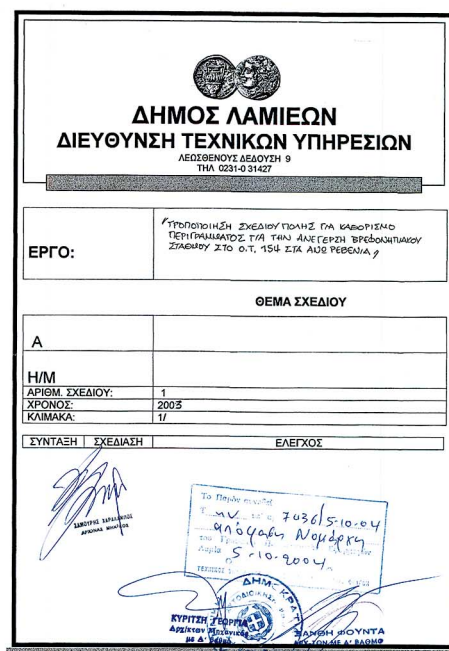 ΔΗΜΟΣ ΛΑΜΙΕΩΝ
ΔΙΕΥΘΥΝΣΗ ΤΕΧΝΙΚΩΝ ΥΠΗΡΕΣΙΩΝ
ΛΕΩΣΘΕΝΟΥΣ ΔΕΔΟΥΣΗ 9
ΤΗΛ 0231-0 31427
ΕΡΓΟ:
"ΤΡΟΠΟΠΟΙΗΣΗ ΣΧΕΔΙΟΥ ΠΟΛΗΣ ΓΙΑ ΚΑΘΟΡΙΣΜΟ
ΠΕΡΙΓΡΑΜΜΑΤΟΣ ΓΙΑ ΤΗΝ ΑΝΕΓΕΡΣΗ ΒΡΕΦΟΝΗΠΙΑΚΟΥ
ΣΤΑΘΜΟΥ ΣΤΟ Ο.Τ. 154 ΣΤΑ ΑΝΩ ΡΕΒΕΝΙΑ"
ΘΕΜΑ ΣΧΕΔΙΟΥ
Α
Η/Μ
ΑΡΙΘΜ. ΣΧΕΔΙΟΥ: 1
ΧΡΟΝΟΣ: 2003
ΚΛΙΜΑΚΑ: 1/
ΣΥΝΤΑΞΗ ΣΧΕΔΙΑΣΗ ΕΛΕΓΧΟΣ
Το Παρόν συνοδεύει
την 7036/5-10-04
απόφαση Νομάρχη
Λαμία 5-10-2004
ΚΥΡΙΤΣΗ ΓΕΩΡΓΙΑ
Αρχ/κτων Μηχανικός
με Δ' βαθμό
ΞΑΝΘΗ ΦΟΥΝΤΑ
ΜΕ Α' ΒΑΘΜΟ